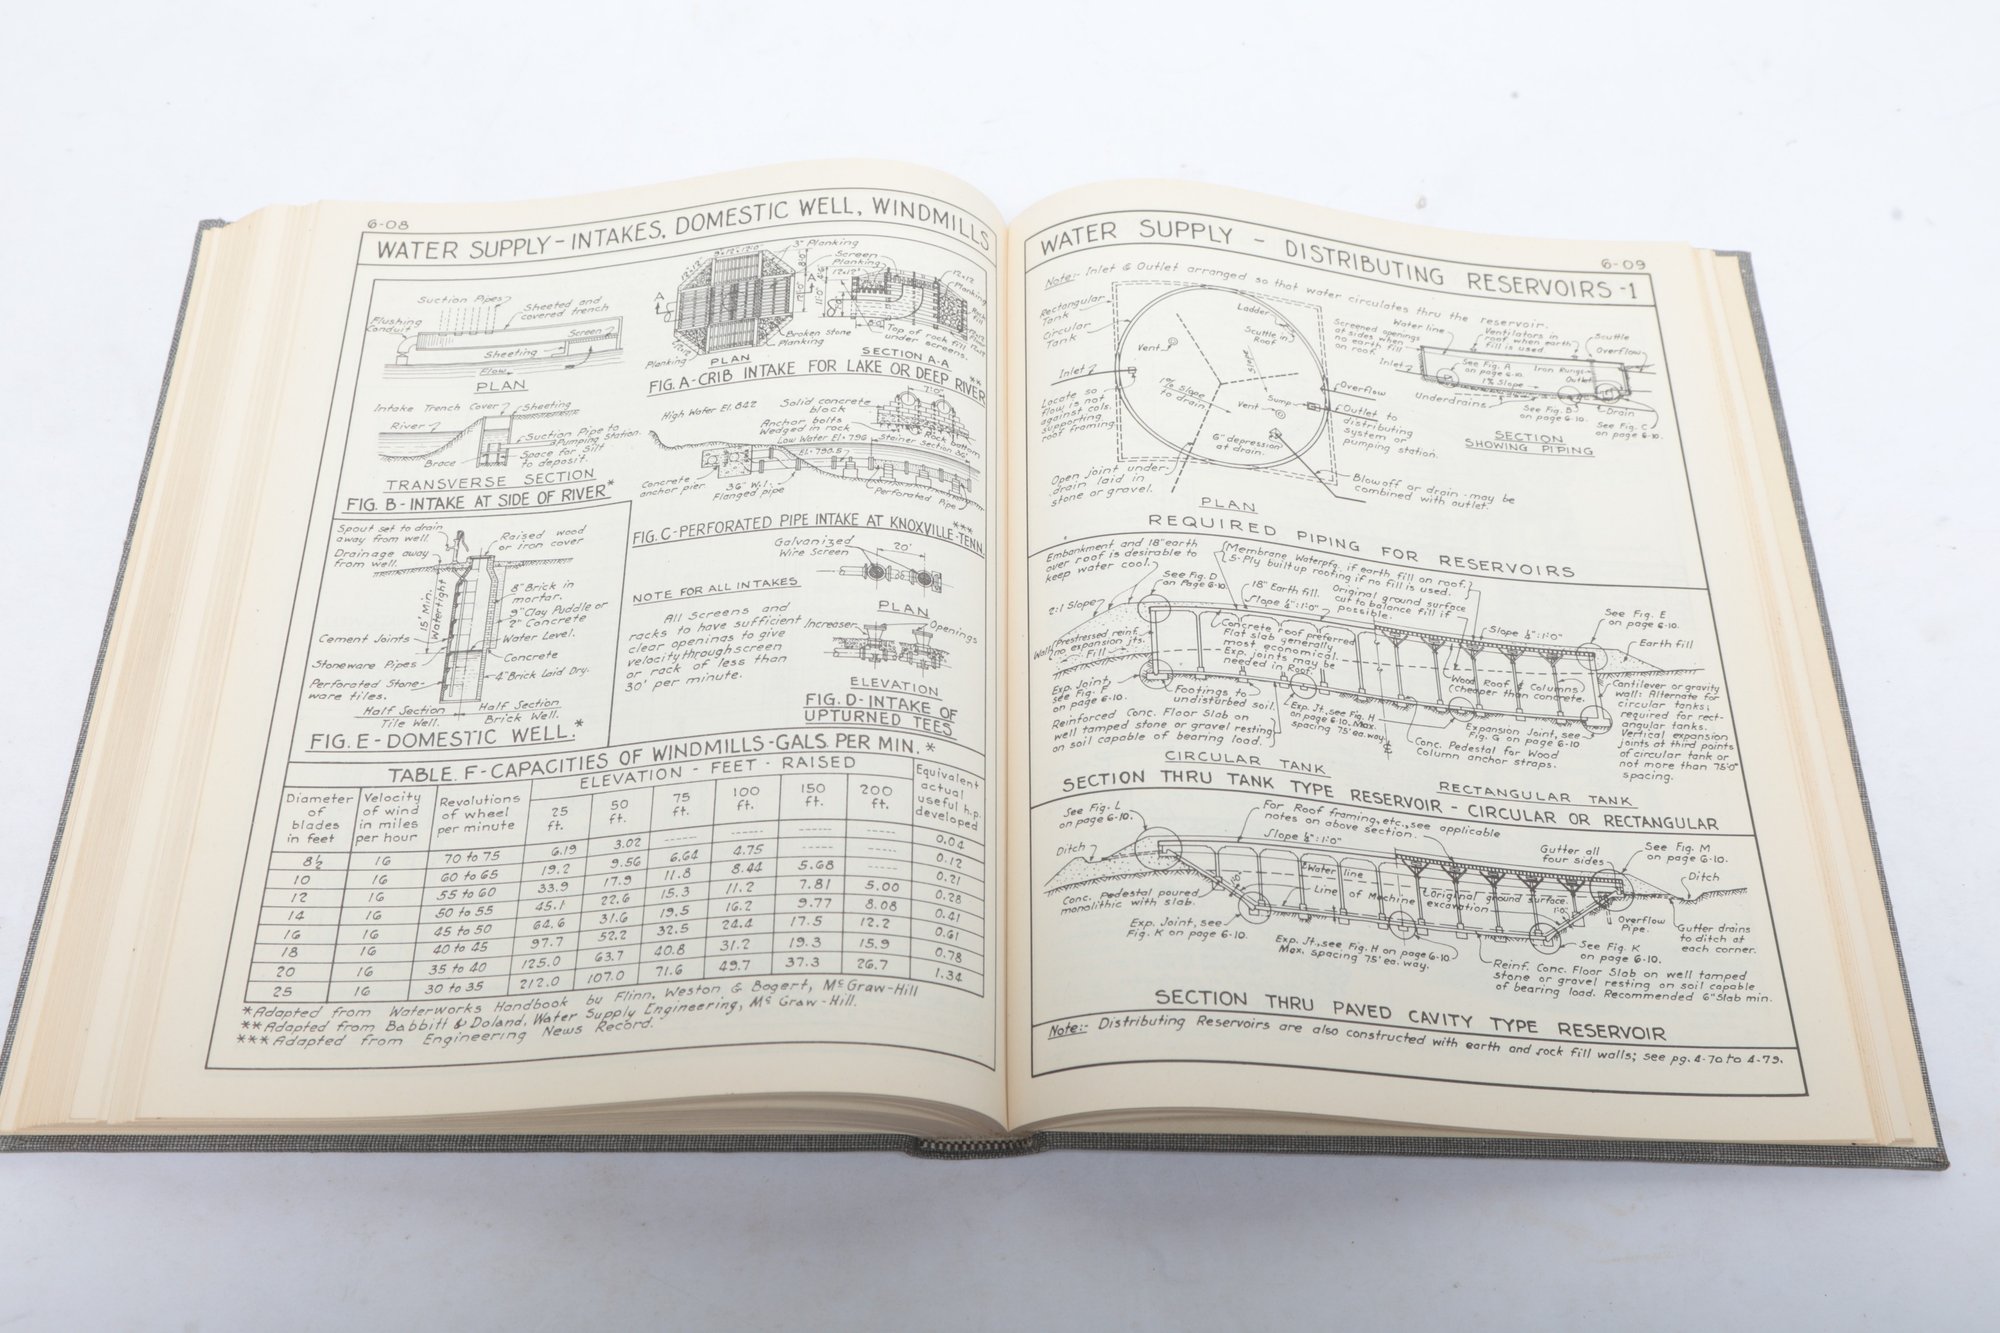 6-08
WATER SUPPLY-INTAKES, DOMESTIC WELL, WINDMILLS
Suction Pipes
Sheeted and
covered trench
Flushing
Conduit
Screen
Sheeting
Flow
PLAN
Intake Trench Cover
Sheeting
River
Suction Pipe to
Pumping Station.
Space for Silt
to deposit.
Brace
TRANSVERSE SECTION
FIG. B-INTAKE AT SIDE OF RIVER*
3" Planking
Screen
Planking
12"x12"
A
A
Broken Stone
Planking
Planking
PLAN
12x12
Planking
Rock
fill
8'0"
Top of rock fill
under screens.
SECTION A-A
FIG. A-CRIB INTAKE FOR LAKE OR DEEP RIVER**
7'0"
High Water El. 842
Solid concrete
block
Anchor bolts
Wedged in rock
Low Water El. 796
Rock bottom
Stainer Section 36"
Concrete
anchor pier
36" W.I.
Flanged pipe
Perforated Pipe
FIG. C-PERFORATED PIPE INTAKE AT KNOXVILLE-TENN.***
Spout set to drain
away from well.
Drainage away
from well.
Raised wood
or Iron cover
15' Min.
Watertight
8" Brick in
mortar.
9" Clay Puddle or
2" Concrete
Water Level.
Cement Joints
Stoneware Pipes
Concrete
4" Brick Laid Dry.
Perforated Stone-
ware tiles.
Half Section
Tile Well.
Half Section
Brick Well.
FIG. E-DOMESTIC WELL.*
NOTE FOR ALL INTAKES
All Screens and
racks to have sufficient
clear openings to give
velocity through screen
or rack of less than
30' per minute.
Galvanized
Wire Screen
20'
PLAN
Increaser
Openings
ELEVATION
FIG. D-INTAKE OF
UPTURNED TEES
TABLE. F-CAPACITIES OF WINDMILLS-GALS. PER MIN.*
Diameter of blades in feet
Velocity of wind in miles per hour
Revolutions of wheel per minute
ELEVATION - FEET - RAISED
Equivalent actual useful h.p. developed
25 ft. 50 ft. 75 ft. 100 ft. 150 ft. 200 ft.
8½ 16 70 to 75 6.19 3.02 ----- ----- ----- ----- 0.04
10 16 60 to 65 19.2 9.56 6.64 4.75 ----- ----- 0.12
12 16 55 to 60 33.9 17.9 11.8 8.44 5.68 ----- 0.21
14 16 50 to 55 45.1 22.6 15.3 11.2 7.81 5.00 0.28
16 16 45 to 50 64.6 31.6 19.5 16.2 9.77 8.08 0.41
18 16 40 to 45 97.7 52.2 32.5 24.4 17.5 12.2 0.61
20 16 35 to 40 125.0 63.7 40.8 31.2 19.3 15.9 0.78
25 16 30 to 35 212.0 107.0 71.6 49.7 37.3 26.7 1.34
*Adapted from Waterworks Handbook by Flinn, Weston & Bogert, McGraw-Hill
**Adapted from Babbitt & Doland, Water Supply Engineering, McGraw-Hill.
***Adapted from Engineering News Record.
6-09
WATER SUPPLY - DISTRIBUTING RESERVOIRS-1
Note:- Inlet & Outlet arranged so that water circulates thru the reservoir.
Rectangular
Tank
Circular
Tank
Inlet
Locate so
flow is not
against cols.
supporting
roof framing.
Open joint under-
drain laid in
stone or gravel.
Vent
Ladder
Scuttle in
Roof.
Slope
1% Slope
to drain
Sump
Vent
6" depression
at drain.
Overflow
Outlet to
distributing
system or
pumping station.
Blowoff or drain-may be
combined with outlet.
PLAN
Screened openings
at sides when
no earth fill
on roof.
Water line
Ventilators in
roof when earth
fill is used.
Scuttle
Overflow
Inlet
See Fig. A
on page 6-10.
Iron Rungs
Outlet
1% Slope
Underdrains
See Fig. B
on page 6-10.
Drain
See Fig. C
on page 6-10.
SECTION
SHOWING PIPING
REQUIRED PIPING FOR RESERVOIRS
Embankment and 18" earth
over roof is desirable to
keep water cool.
Membrane Waterpfg. if earth fill on roof.
5-Ply built up roofing if no fill is used.
See Fig. D
on Page 6-10.
18" Earth fill.
Slope ¼":1'-0"
Original ground surface
cut to balance fill if
possible.
2:1 Slope
Slope ¼":1'-0"
See Fig. E
on page 6-10.
Earth fill
Prestressed reinf.
Wall, no expansion jts.
Fill
Concrete roof preferred
Flat slab generally
most economical.
Exp. joints may be
needed in Roof.
Wood Roof & Columns
(Cheaper than concrete.
Exp. Joint,
see Fig. F
on page 6-10.
Footings to
undisturbed soil.
Exp. Jt., see Fig. H
on page 6-10. Max.
spacing 75' ea. way.
Reinforced Conc. Floor Slab on
well tamped stone or gravel resting
on soil capable of bearing load.
Expansion Joint, see
Fig. G on page 6-10
Conc. Pedestal for Wood
Column anchor straps.
Cantilever or gravity
wall: Alternate for
circular tanks;
required for rect-
angular tanks.
Vertical expansion
joints at third points
of circular tank or
not more than 75'0"
spacing.
CIRCULAR TANK
RECTANGULAR TANK
SECTION THRU TANK TYPE RESERVOIR - CIRCULAR OR RECTANGULAR
See Fig. L
on page 6-10.
For Roof framing, etc., see applicable
notes on above section.
Slope ¼":1'-0"
Ditch
Gutter all
four sides
See Fig. M
on page 6-10.
Ditch
Water line
Line of Machine
excavation
Original ground surface
Conc. Pedestal poured
monolithic with slab.
Exp. Joint, see
Fig. K on page 6-10.
Exp. Jt., see Fig. H on page 6-10
Max. spacing 75' ea. way.
Overflow
Pipe.
Gutter drains
to ditch at
each corner.
See Fig. K
on page 6-10.
Reinf. Conc. Floor Slab on well tamped
stone or gravel resting on soil capable
of bearing load. Recommended 6" Slab min.
SECTION THRU PAVED CAVITY TYPE RESERVOIR
Note:- Distributing Reservoirs are also constructed with earth and rock fill walls; see pg. 4-70 to 4-79.